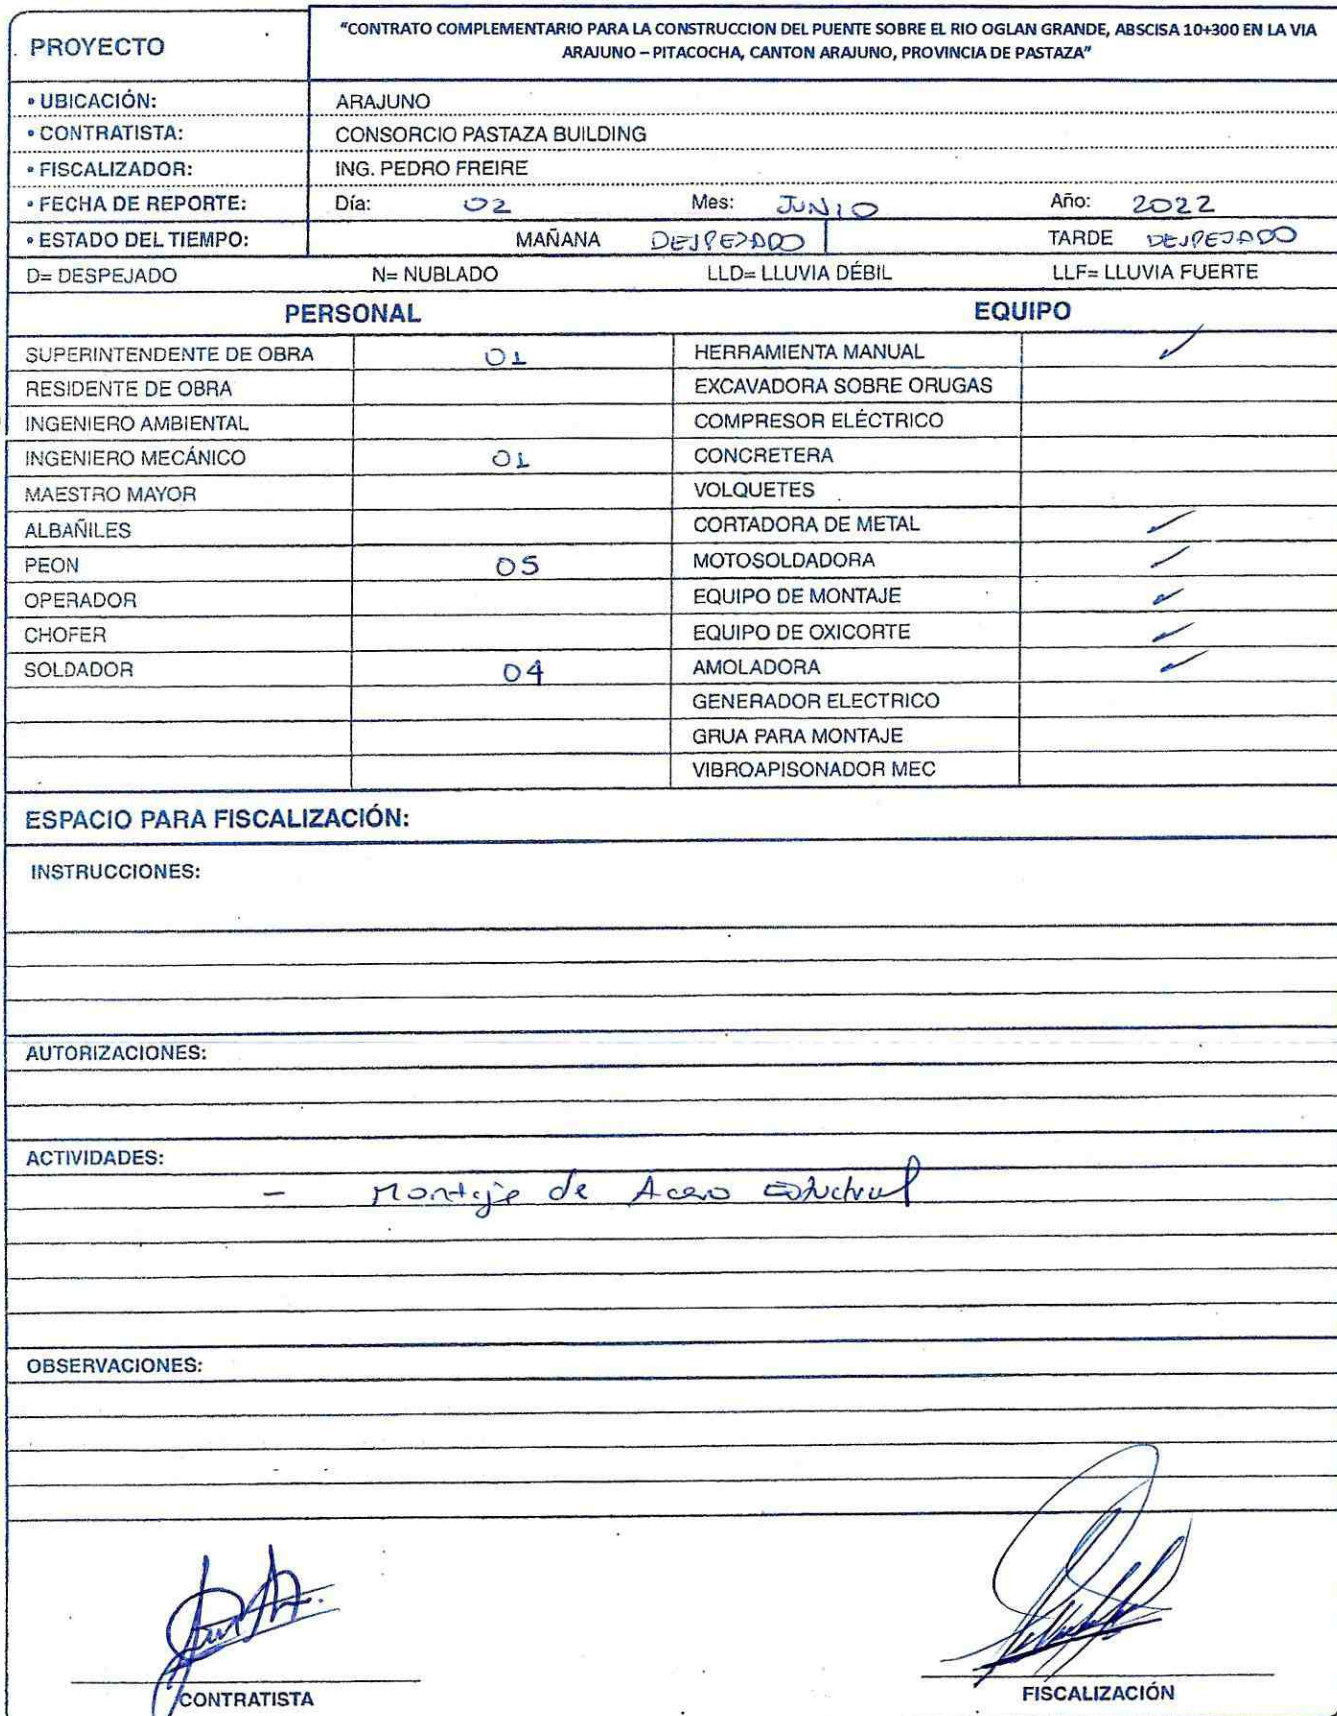 PROYECTO
"CONTRATO COMPLEMENTARIO PARA LA CONSTRUCCION DEL PUENTE SOBRE EL RIO OGLAN GRANDE, ABSCISA 10+300 EN LA VIA
ARAJUNO – PITACOCHA, CANTON ARAJUNO, PROVINCIA DE PASTAZA"
• UBICACIÓN: ARAJUNO
• CONTRATISTA: CONSORCIO PASTAZA BUILDING
• FISCALIZADOR: ING. PEDRO FREIRE
• FECHA DE REPORTE: Día: 02 Mes: JUNIO Año: 2022
• ESTADO DEL TIEMPO: MAÑANA DESPEJADO TARDE DESPEJADO
D= DESPEJADO N= NUBLADO LLD= LLUVIA DÉBIL LLF= LLUVIA FUERTE
PERSONAL EQUIPO
SUPERINTENDENTE DE OBRA 01 HERRAMIENTA MANUAL ✓
RESIDENTE DE OBRA EXCAVADORA SOBRE ORUGAS
INGENIERO AMBIENTAL COMPRESOR ELÉCTRICO
INGENIERO MECÁNICO 01 CONCRETERA
MAESTRO MAYOR VOLQUETES
ALBAÑILES CORTADORA DE METAL ✓
PEON 05 MOTOSOLDADORA ✓
OPERADOR EQUIPO DE MONTAJE ✓
CHOFER EQUIPO DE OXICORTE ✓
SOLDADOR 04 AMOLADORA ✓
GENERADOR ELECTRICO
GRUA PARA MONTAJE
VIBROAPISONADOR MEC
ESPACIO PARA FISCALIZACIÓN:
INSTRUCCIONES:
AUTORIZACIONES:
ACTIVIDADES:
– Montaje de Acero Estructural
OBSERVACIONES:
CONTRATISTA FISCALIZACIÓN